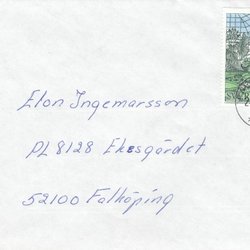 Elon Ingemarsson
PL 8128 Ekesgärdet
52100 Falköping